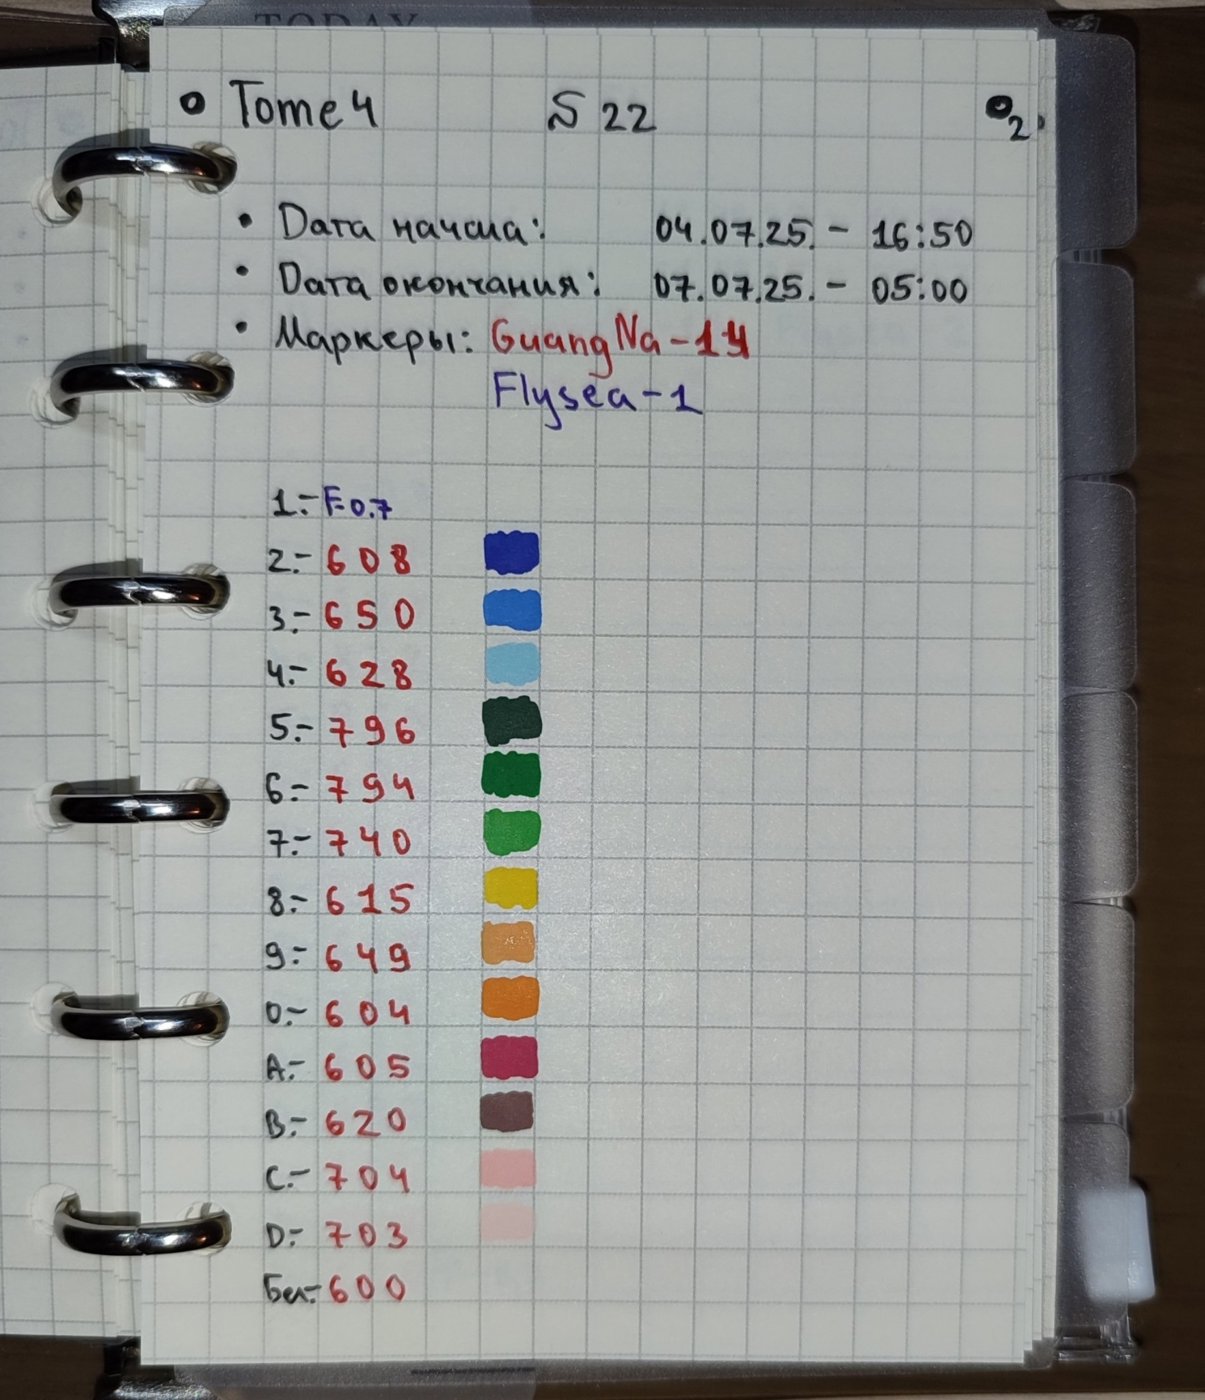 TODAY
Tome 4 S 22 2
• Дата начала: 04.07.25. - 16:50
• Дата окончания: 07.07.25. - 05:00
• Маркеры: GuangNa-14
Flysea-1
1.- F-0.7
2.- 608
3.- 650
4.- 628
5.- 796
6.- 794
7.- 740
8.- 615
9.- 649
0.- 604
A.- 605
B.- 620
C.- 704
D.- 703
Бел.- 600